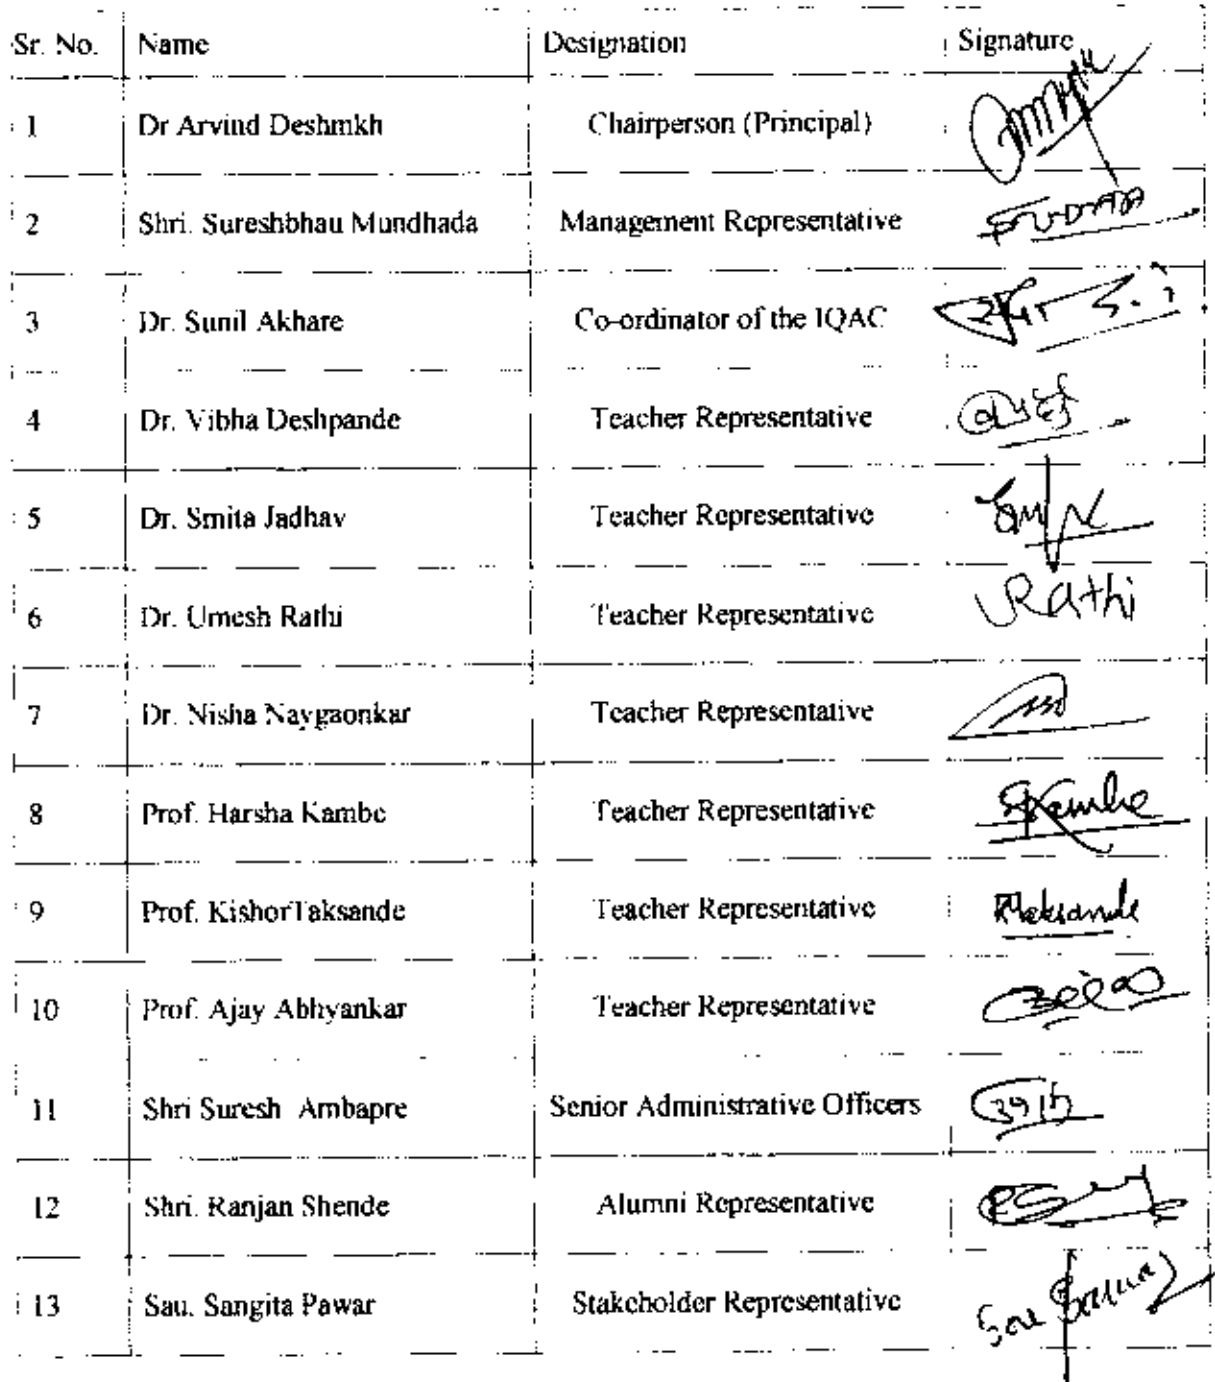 Sr. No. Name Designation Signature
1 Dr Arvind Deshmkh Chairperson (Principal)
2 Shri. Sureshbhau Mundhada Management Representative
3 Dr. Sunil Akhare Co-ordinator of the IQAC
4 Dr. Vibha Deshpande Teacher Representative
5 Dr. Smita Jadhav Teacher Representative
6 Dr. Umesh Rathi Teacher Representative Rathi
7 Dr. Nisha Naygaonkar Teacher Representative
8 Prof. Harsha Kambe Teacher Representative
9 Prof. KishorTaksande Teacher Representative
10 Prof. Ajay Abhyankar Teacher Representative
11 Shri Suresh Ambapre Senior Administrative Officers
12 Shri. Ranjan Shende Alumni Representative
13 Sau. Sangita Pawar Stakeholder Representative